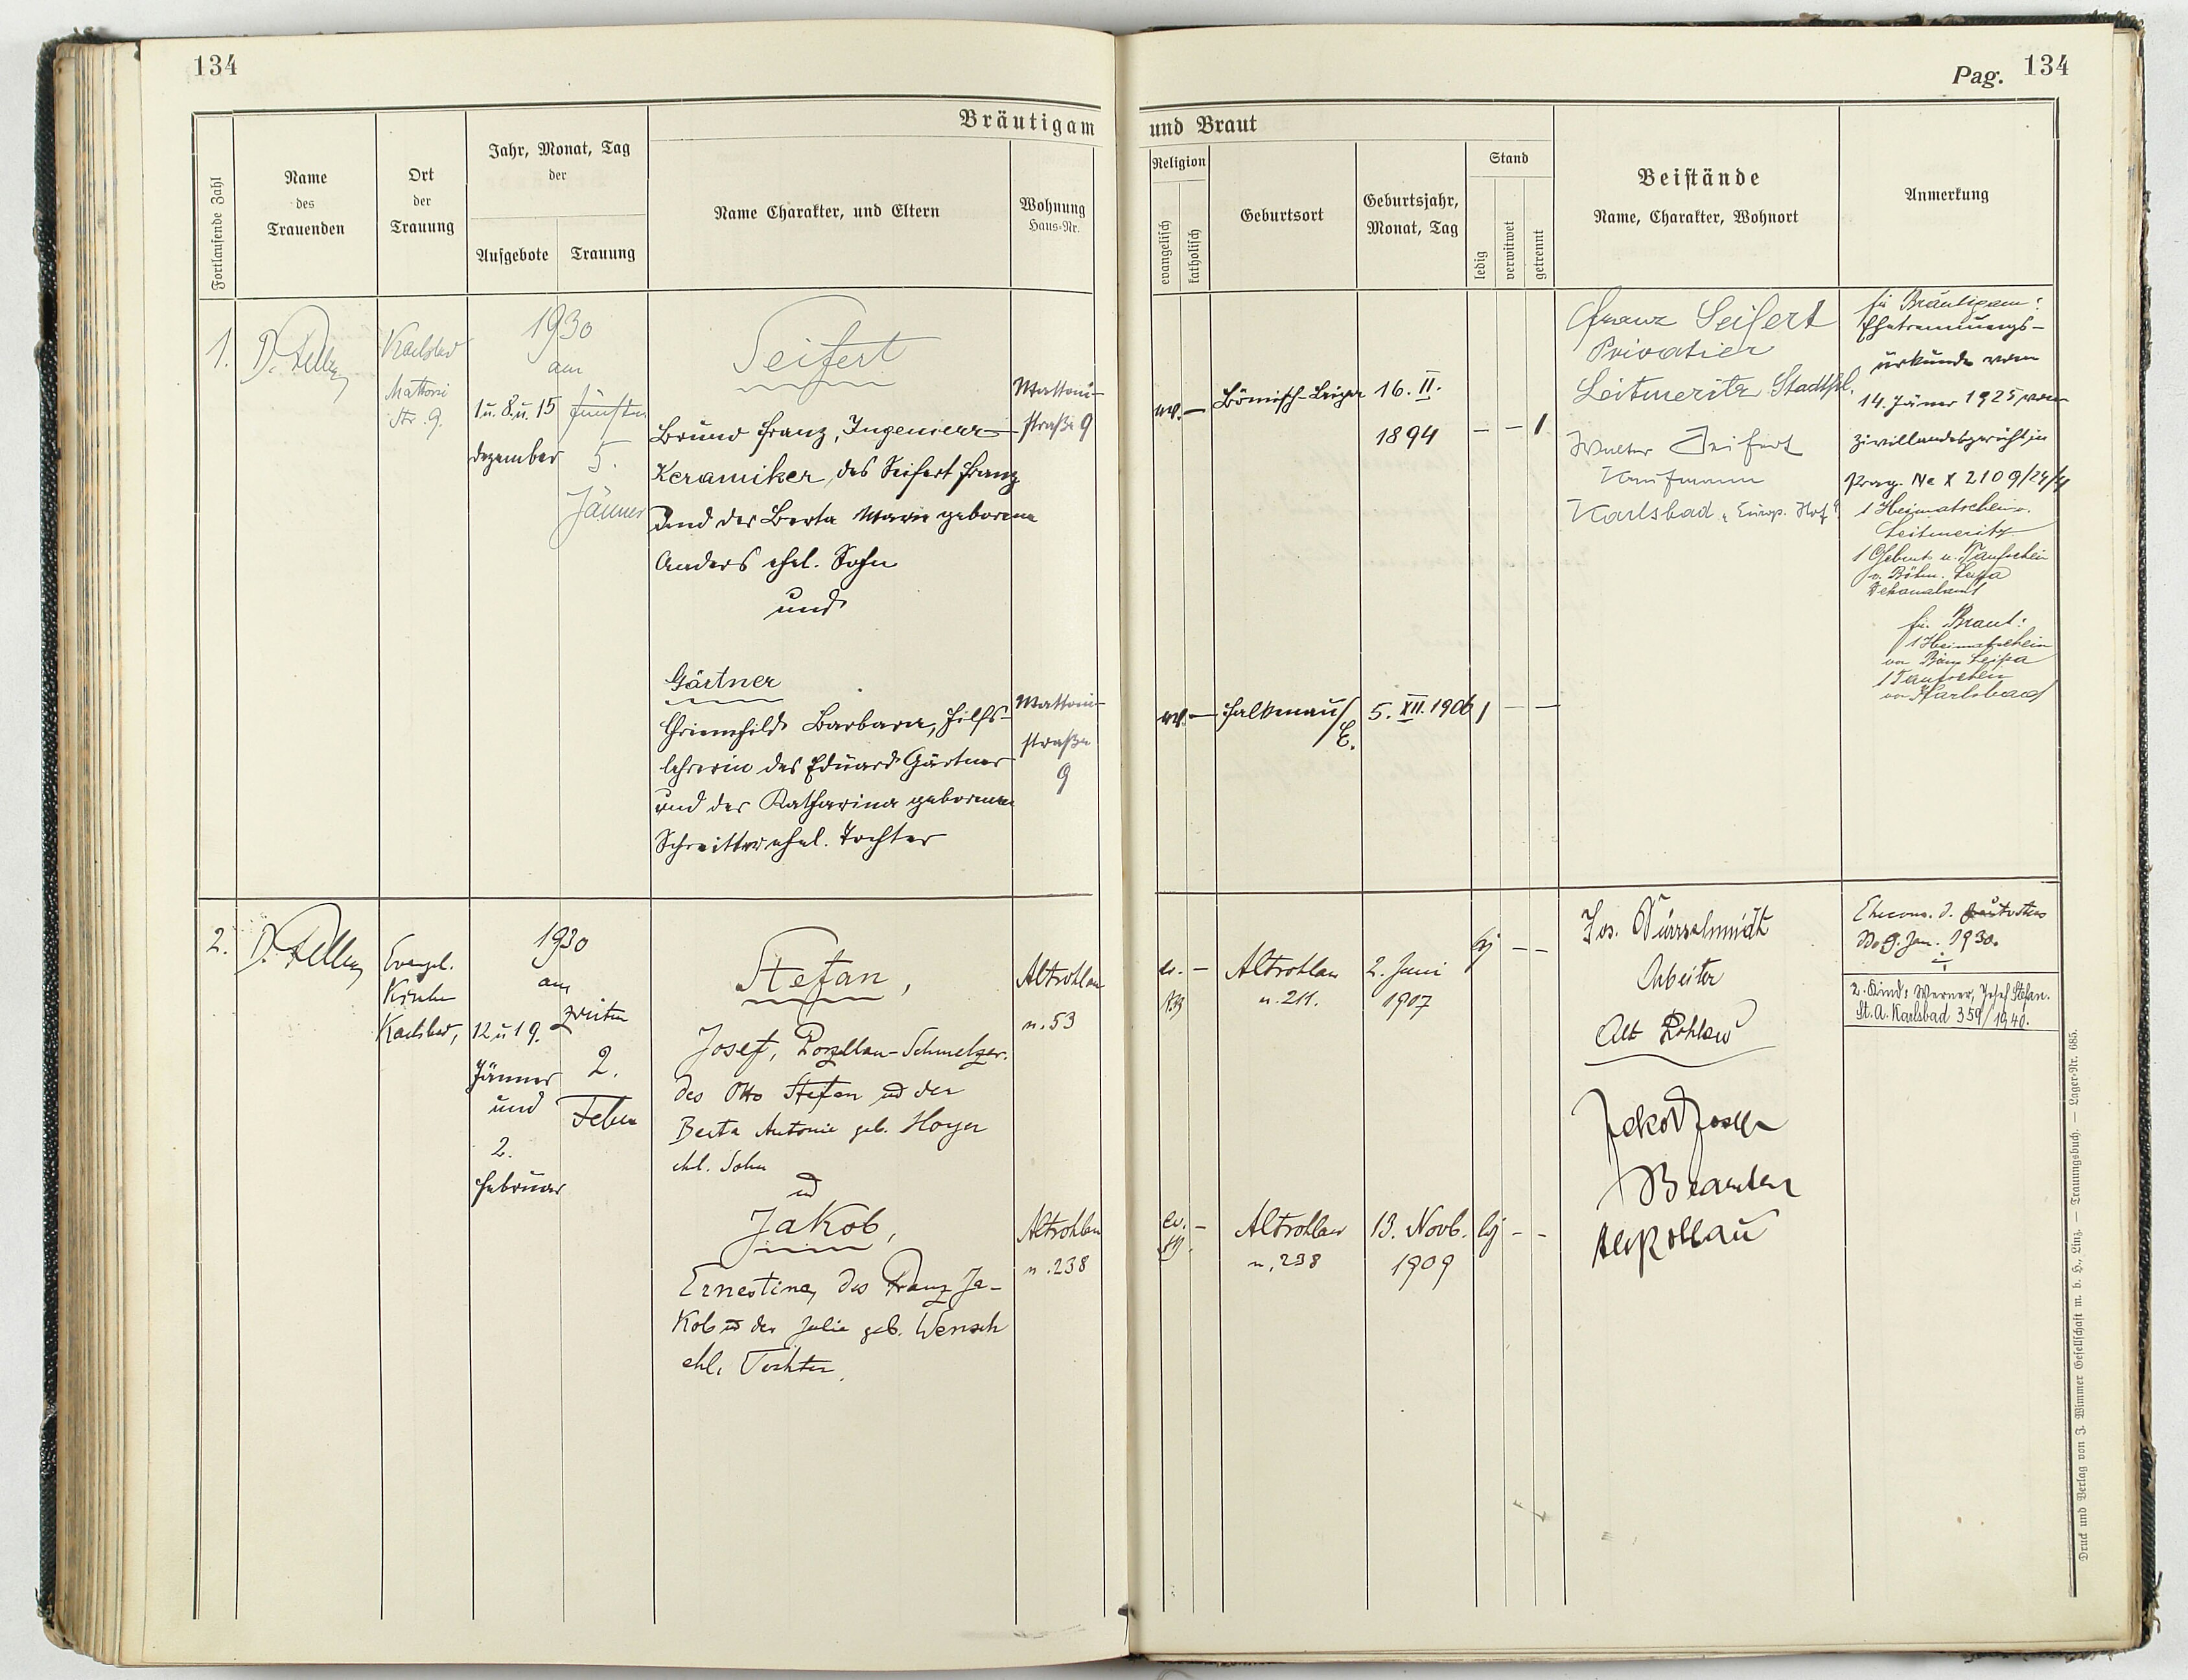 134
Pag. 134
Bräutigam
und Braut
Fortlaufende Zahl
Name
des
Trauenden
Ort
der
Trauung
Jahr, Monat, Tag
der
Aufgebote
Trauung
Name Charakter, und Eltern
Wohnung
Haus-Nr.
Religion
evangelisch
katholisch
Geburtsort
Geburtsjahr,
Monat, Tag
Stand
ledig
verwitwet
getrennt
Beistände
Name, Charakter, Wohnort
Anmerkung
1.
Karlsbad
Mattoni
Str. 9.
1930
am
1 u. 8. u. 15
dezember
fünften
5.
Jänner
Seifert
Bruno Franz, Ingenieur
Keramiker, des Seifert Franz
und der Berta Marie geborene
Anders ehel. Sohn
und
Gärtner
Griemhilde Barbara, Hilfs-
lehrerin des Eduard Gärtner
und der Katharina geborenen
ehel. Tochter
Mattoni-
straße 9
Mattoni-
straße
9
ev. —
Bömisch-Leipa
16. II.
1894
— — 1
ev. —
Falkenau/
E.
5. XII. 1906
1 — —
Franz Seifert
Privatier
Leitmeritz Stadtpl.
Walter Seifert
Kaufmann
Karlsbad „Europ. Hof"
für Bräutigam:
Ehetrennungs-
urkunde vom
14. Jänner 1925 vom
Zivillandesgericht in
Prag. Nc X 2109/24/4
1 Heimatschein v.
Leitmeritz
1 Geburt u. Taufschein
v. Böhm. Leipa
Dekanalamt
für Braut:
1 Heimatschein
von Böm Leipa
1 Taufschein
von Karlsbad
2.
Evangel.
Kirche
Karlsbad,
1930
am
12 u 19.
Jänner
und
2.
Februar
zweiten
2.
Feber
Stefan,
Josef, Porzellan-Schmelzer.
des Otto Stefan ud der
Berta Antonie geb. Hoyer
ehl. Sohn
ud
Jakob,
Ernestine, des Franz Ja-
kob ud der Julie geb. Wensch
ehl. Tochter.
Altrohlau
n. 53
Altrohlau
n. 238
ev. —
Altrohlau
n. 211.
2. Juni
1907
lg — —
ev. —
Altrohlau
n. 238
13. Novb.
1909
lg — —
Jos. Dürrschmidt
Arbeiter
Alt Rohlau
Jakob Josef
Beamter
Altrohlau
9. Jan. 1930.
2. Kind: Werner, Josef Stefan.
St. A. Karlsbad 359/1940.
Druck und Verlag von J. Wimmer Gesellschaft m. b. H., Linz. — Trauungsbuch. — Lager-Nr. 685.